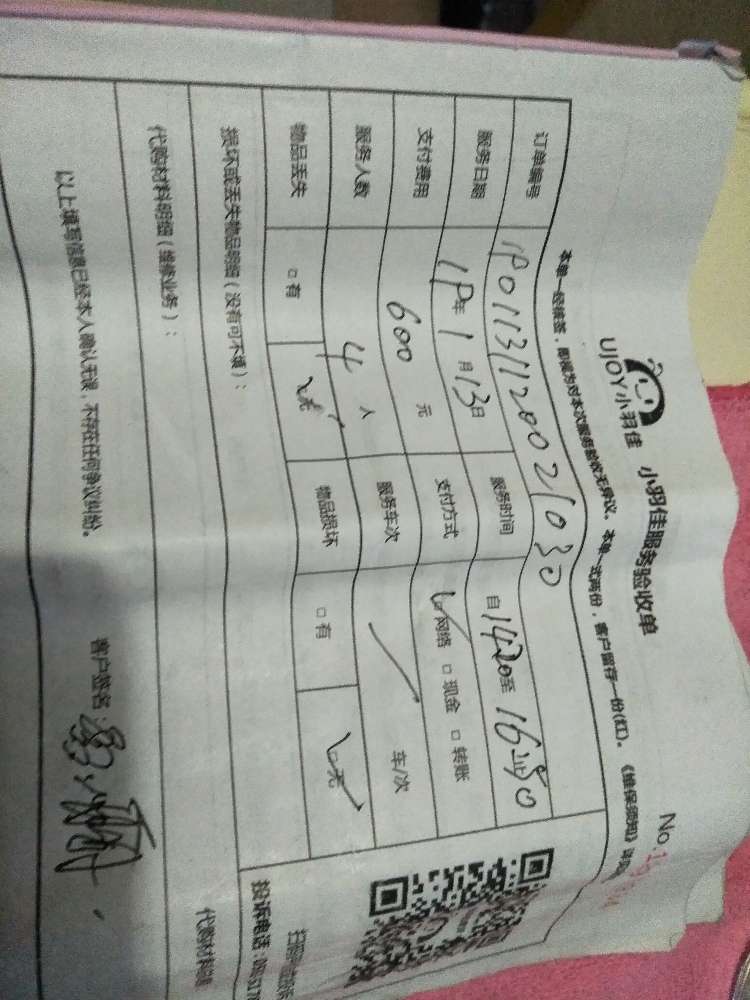 UJOY小羽佳 小羽佳服务验收单 No.
本单一经签签，即视为对本次服务验收无异议。本单一式两份，客户留存一份(红)。《维保须知》
订单编号 1901131120021030
服务日期 19年1月13日 服务时间 自1420至16
支付费用 600元 支付方式 ☑网络 □现金 □转账
服务人数 4人 服务车次 车/次
物品丢失 □有 ☑无 物品损坏 □有 ☑无
损坏或丢失物品明细(没有可不填)：
代购材料明细(维修业务)：
代购材料
以上填写信息已经本人确认无误，不存在任何争议纠纷。
客户签名：
投诉电话：